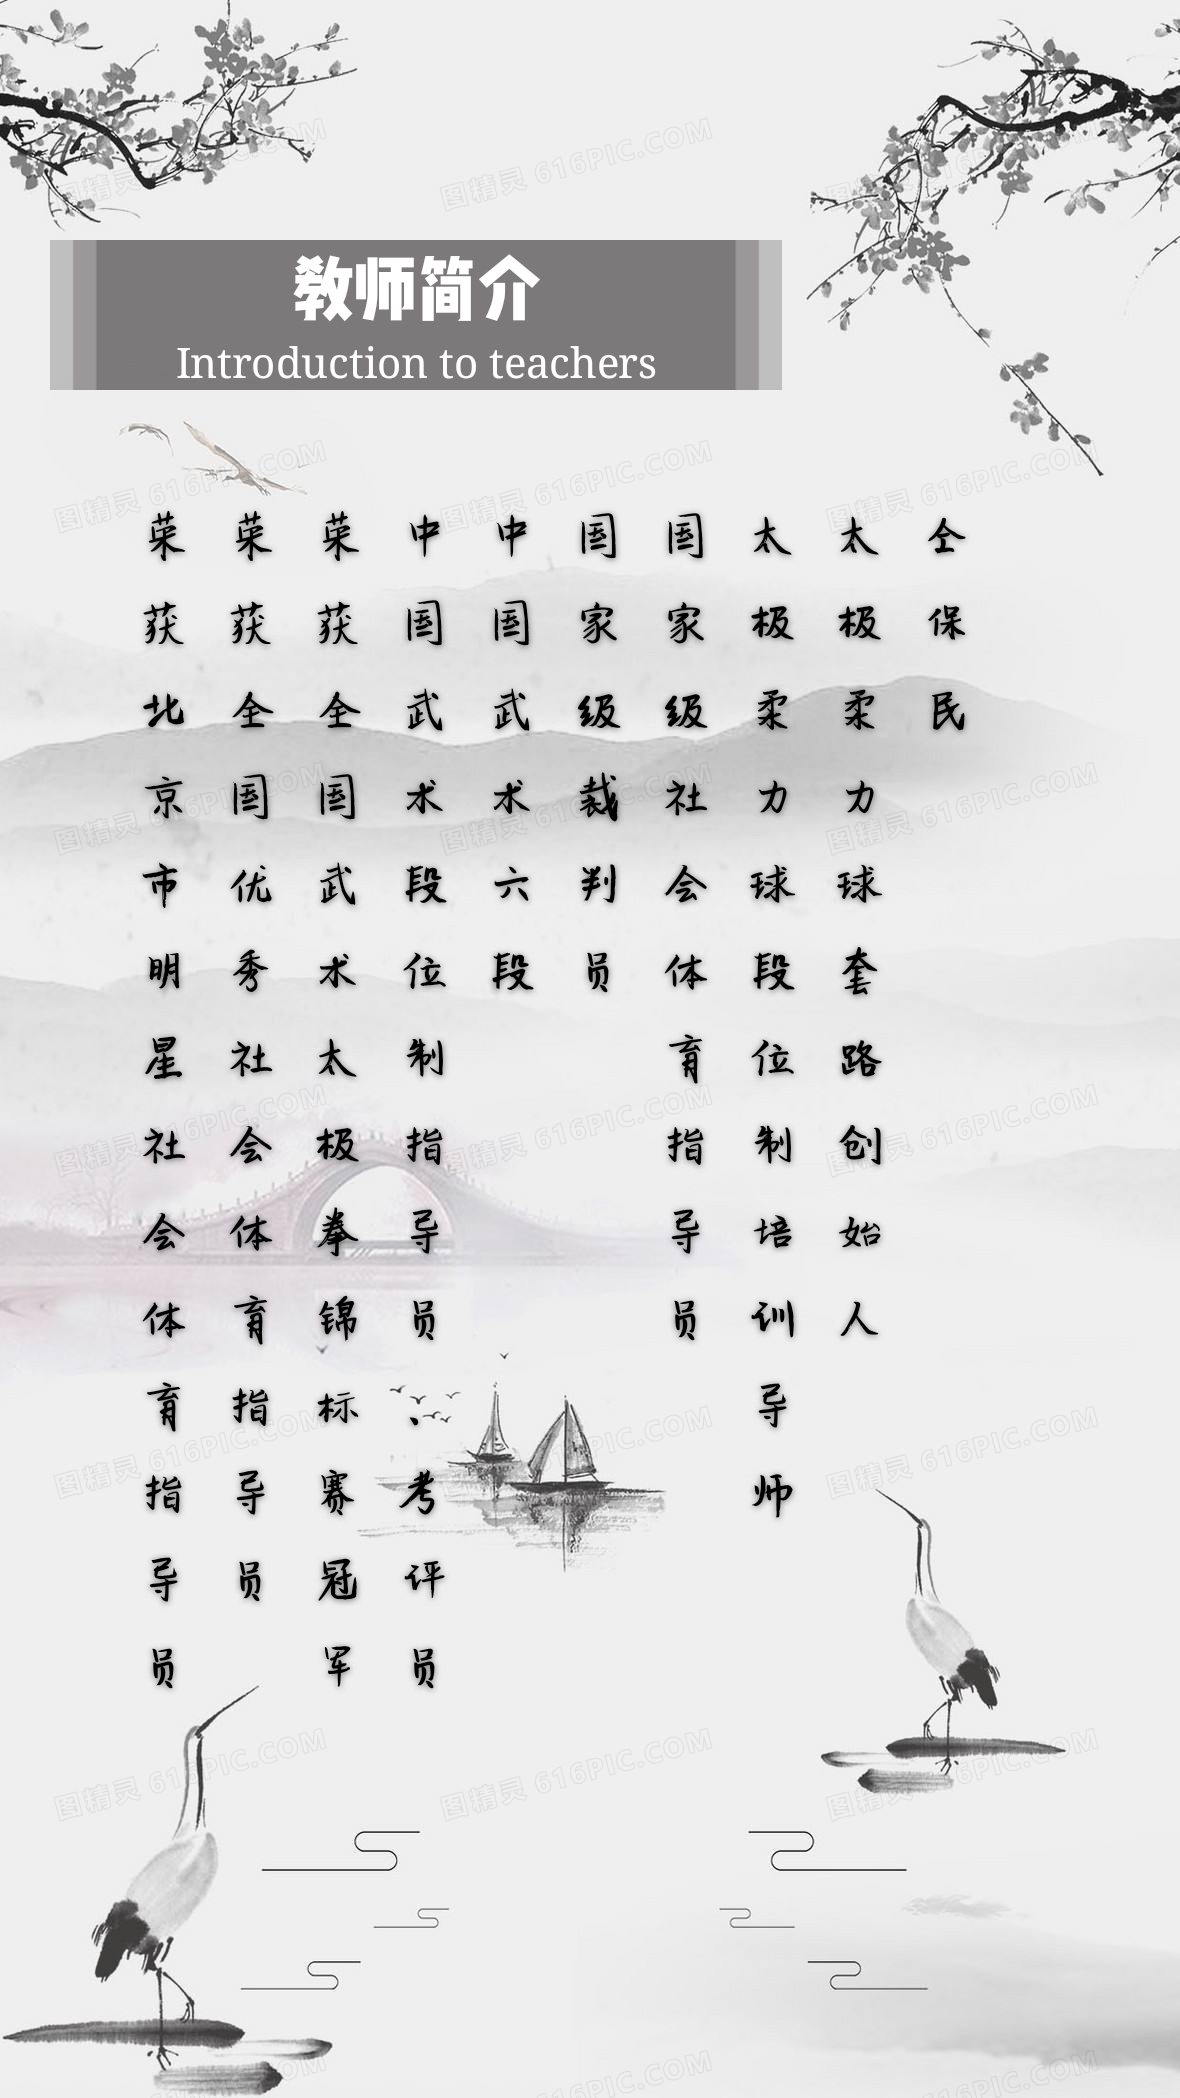 教师简介
Introduction to teachers
仝保民
太极柔力球套路创始人
太极柔力球段位制培训导师
国家级社会体育指导员
国家级裁判员
中国武术六段
中国武术段位制指导员、考评员
荣获全国武术太极拳锦标赛冠军
荣获全国优秀社会体育指导员
荣获北京市明星社会体育指导员
图精灵 616PIC.COM